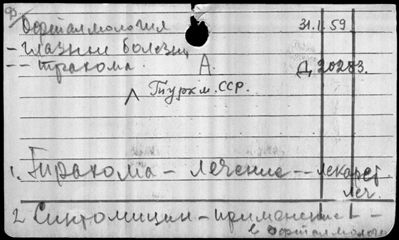 Офтальмология 31.I.59
– глазные болезни
– – трахома. А. Д 20283.
Туркм. ССР.
1. Трахома – лечение – лекарст.
леч.
2. Синтомицин – применение –
в офтальмологии